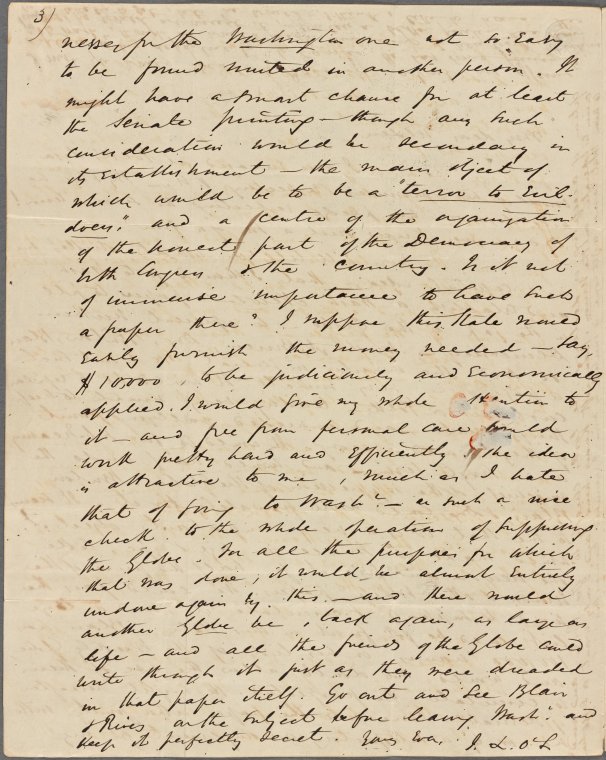 3)
nesses for the Washington one not so easy
to be found united in another person. It
might have a smart chance for at least
the Senate printing — though any such
consideration would be secondary in
its Establishment — the main object of
which would be to be a "terror to Evil-
doers," and a centre of the organization
of the honest part of the Democracy of
both Congress & the country. Is it not
of immense importance to have such
a paper there? I suppose this State would
easily furnish the money needed — say,
$10000, to be judiciously and Economically
applied. I would give my whole attention to
it — and free from personal care would
work pretty hard and Efficiently. The idea
is attractive to me, much as I hate
that of going to Washn. — as such a nice
check to the whole operation of suppressing
the Globe. For all the purposes for which
that was done, it would be almost Entirely
undone again by this — and there would
another Globe be, back again, as large as
life — and all the friends of the Globe could
write through it just as they were dreaded
in that paper itself. Go out and see Blair
& Rives on the subject before leaving Washn. and
keep it perfectly secret. Yours Ever, J. L. O'S